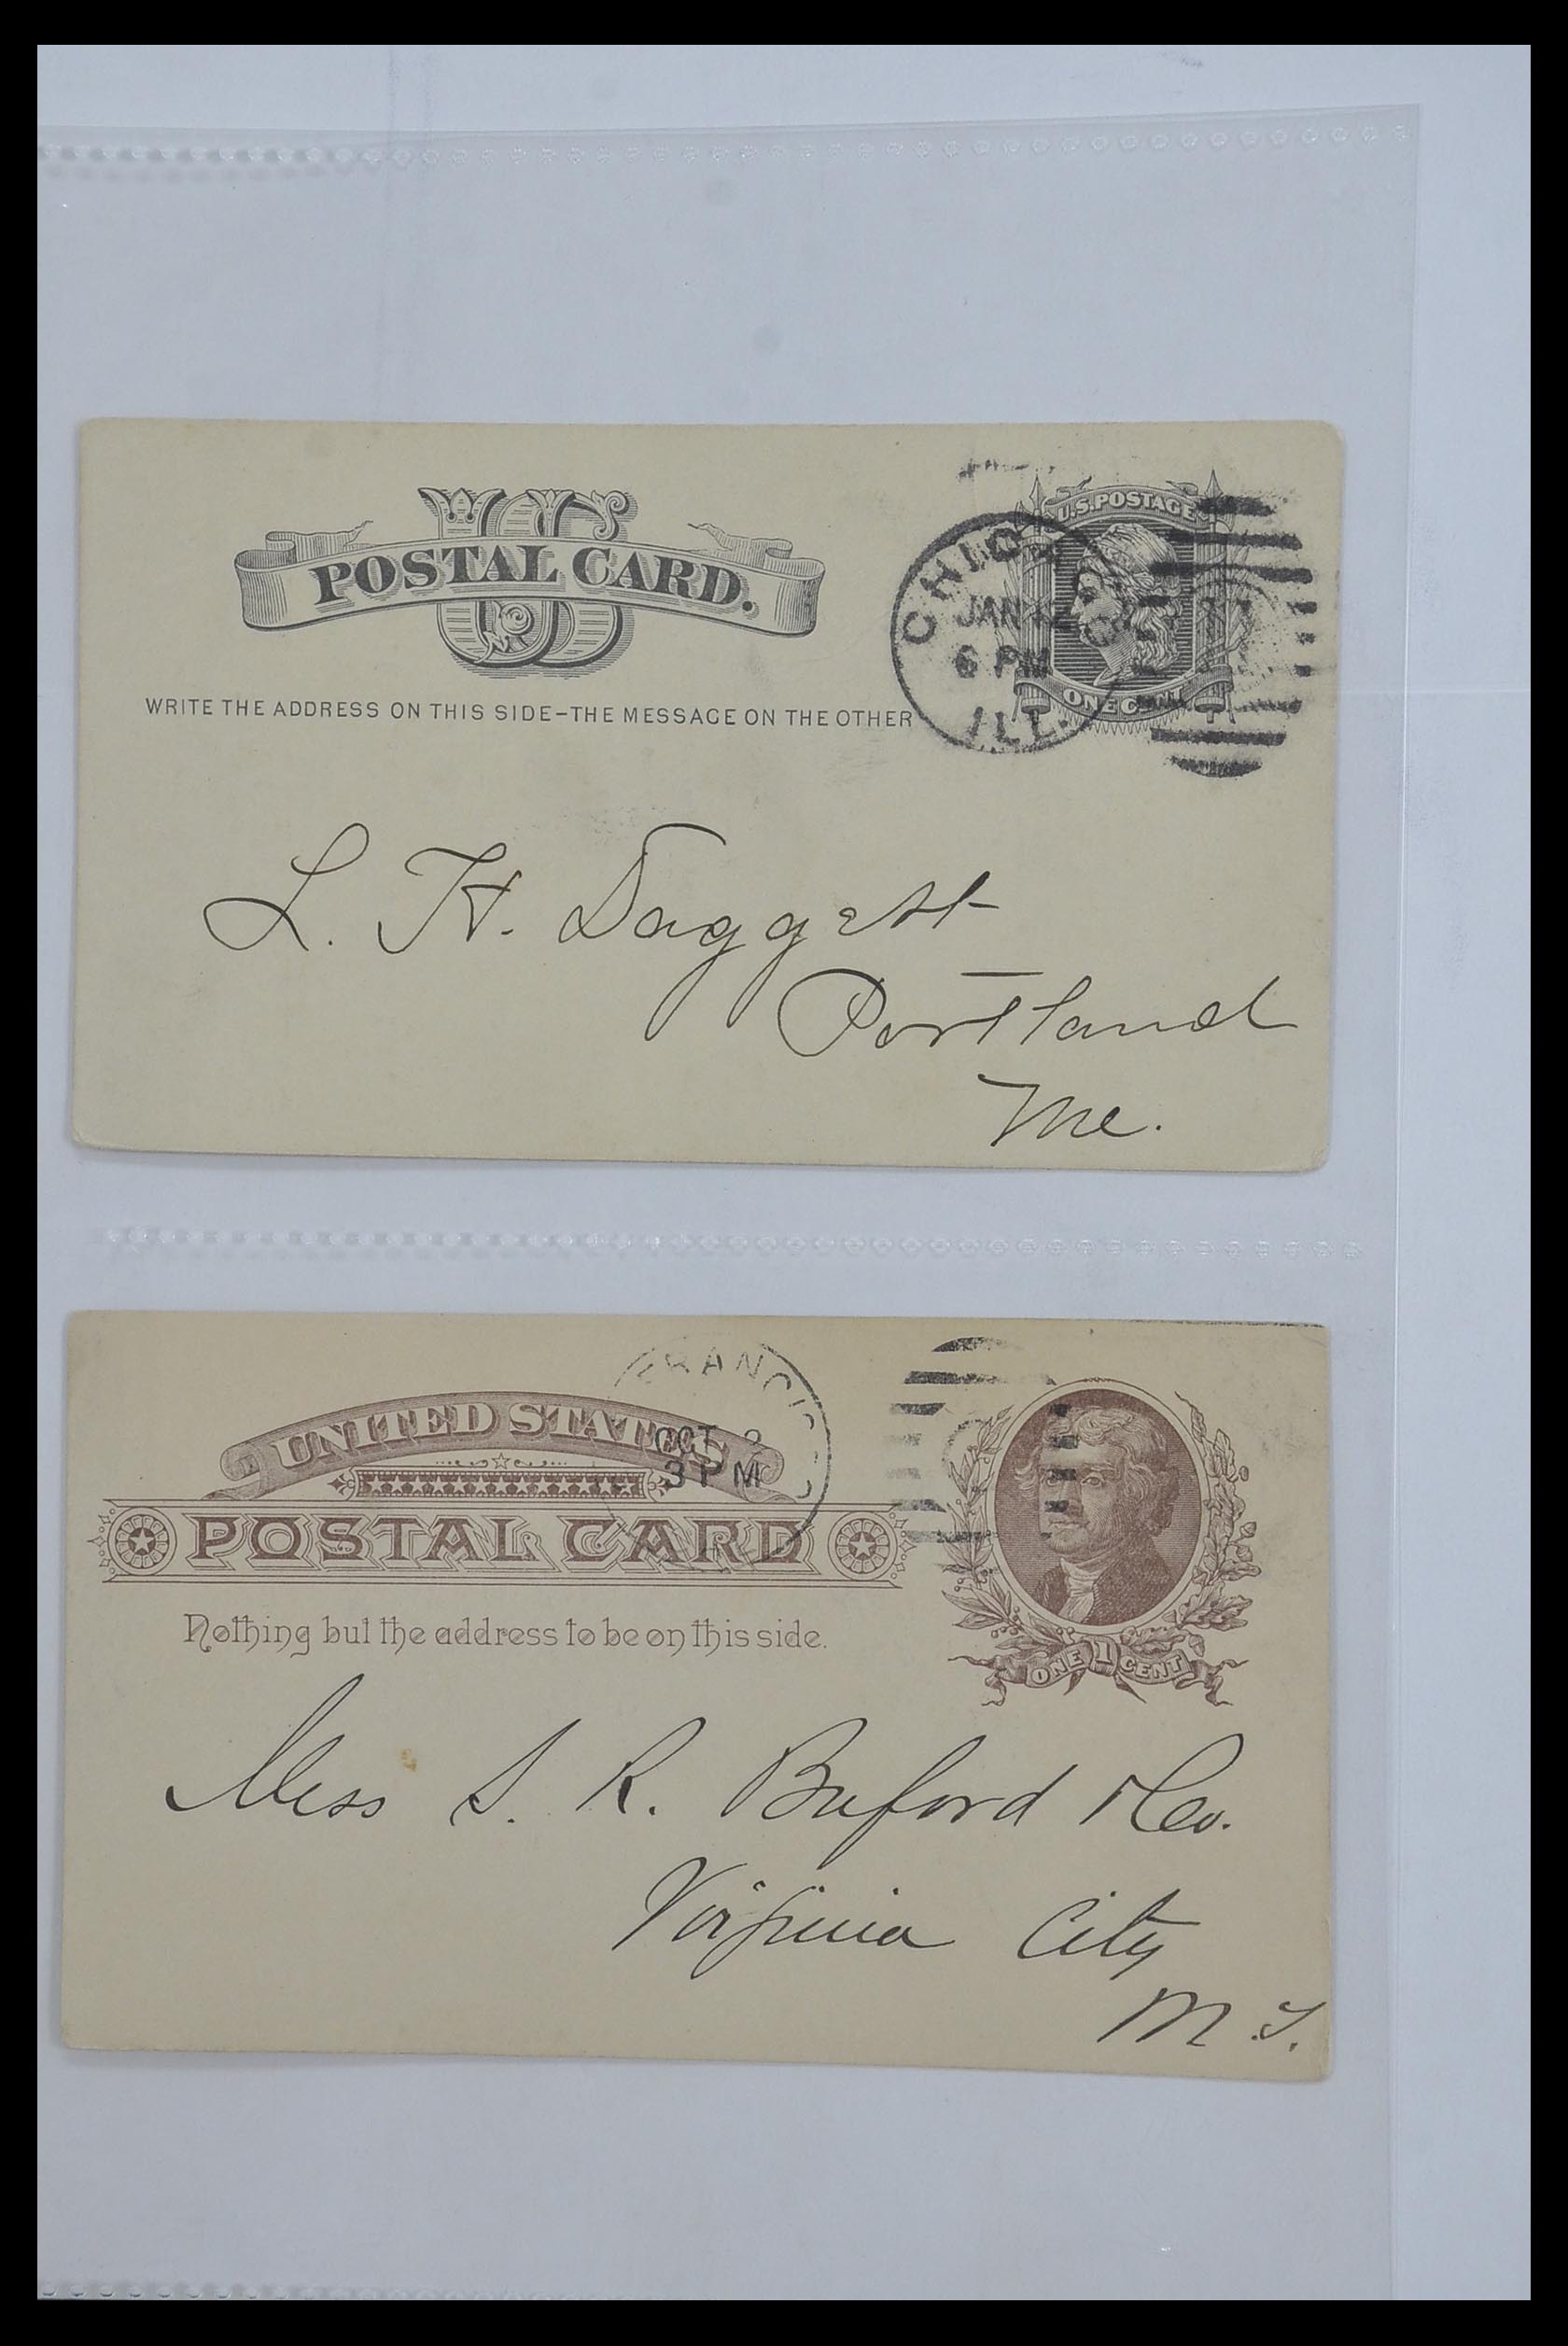 US
POSTAL CARD.
U.S. POSTAGE
ONE CENT
CHICAGO
JAN
6 PM
ILL.
WRITE THE ADDRESS ON THIS SIDE-THE MESSAGE ON THE OTHER
L. H. Daggett
Portland
Me.
UNITED STATES
POSTAL CARD
FRANCISCO
OCT 2
3 PM
Nothing but the address to be on this side.
ONE 1 CENT
Mess S. R. Buford & Co.
Virginia City
M.T.